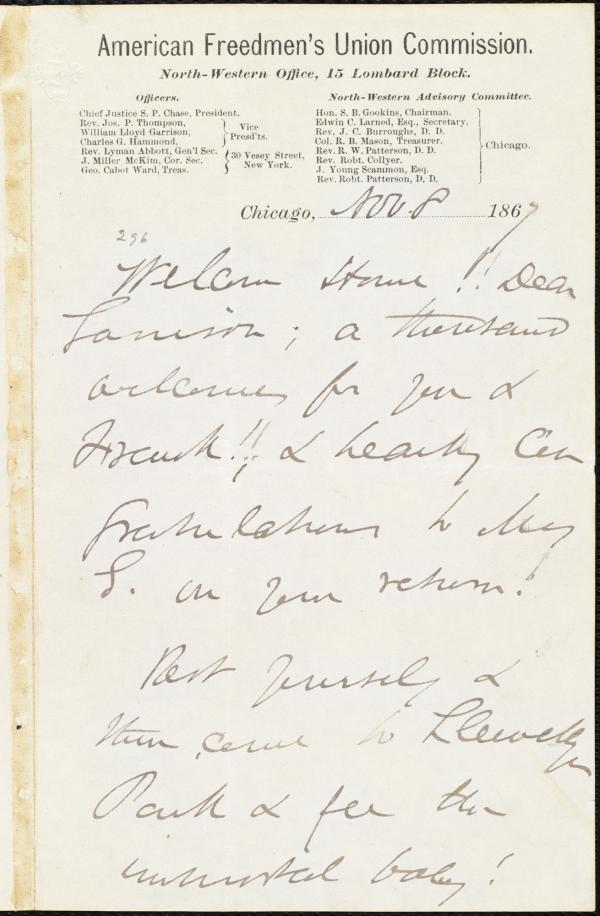 American Freedmen's Union Commission.
North-Western Office, 15 Lombard Block.
Officers.
Chief Justice S. P. Chase, President.
Rev. Jos. P. Thompson,
William Lloyd Garrison,
Charles G. Hammond,
Vice
Presd'ts.
Rev. Lyman Abbott, Gen'l Sec.
J. Miller McKim, Cor. Sec.
Geo. Cabot Ward, Treas.
30 Vesey Street,
New York.
North-Western Advisory Committee.
Hon. S. B. Gookins, Chairman.
Edwin C. Larned, Esq., Secretary.
Rev. J. C. Burroughs, D. D.
Col. R. B. Mason, Treasurer.
Rev. R. W. Patterson, D. D.
Rev. Robt. Collyer.
J. Young Scammon, Esq.
Rev. Robt. Patterson, D. D.
Chicago.
Chicago, Nov 8 1867
296
Welcom Home!! Dear
Garrison; a thousand
welcomes for you &
Frank!!, & hearty Con
gratulations to Mrs
G. on your return!
Rest yourself &
then come to Llewellyn
Park & see the
immortal baby!